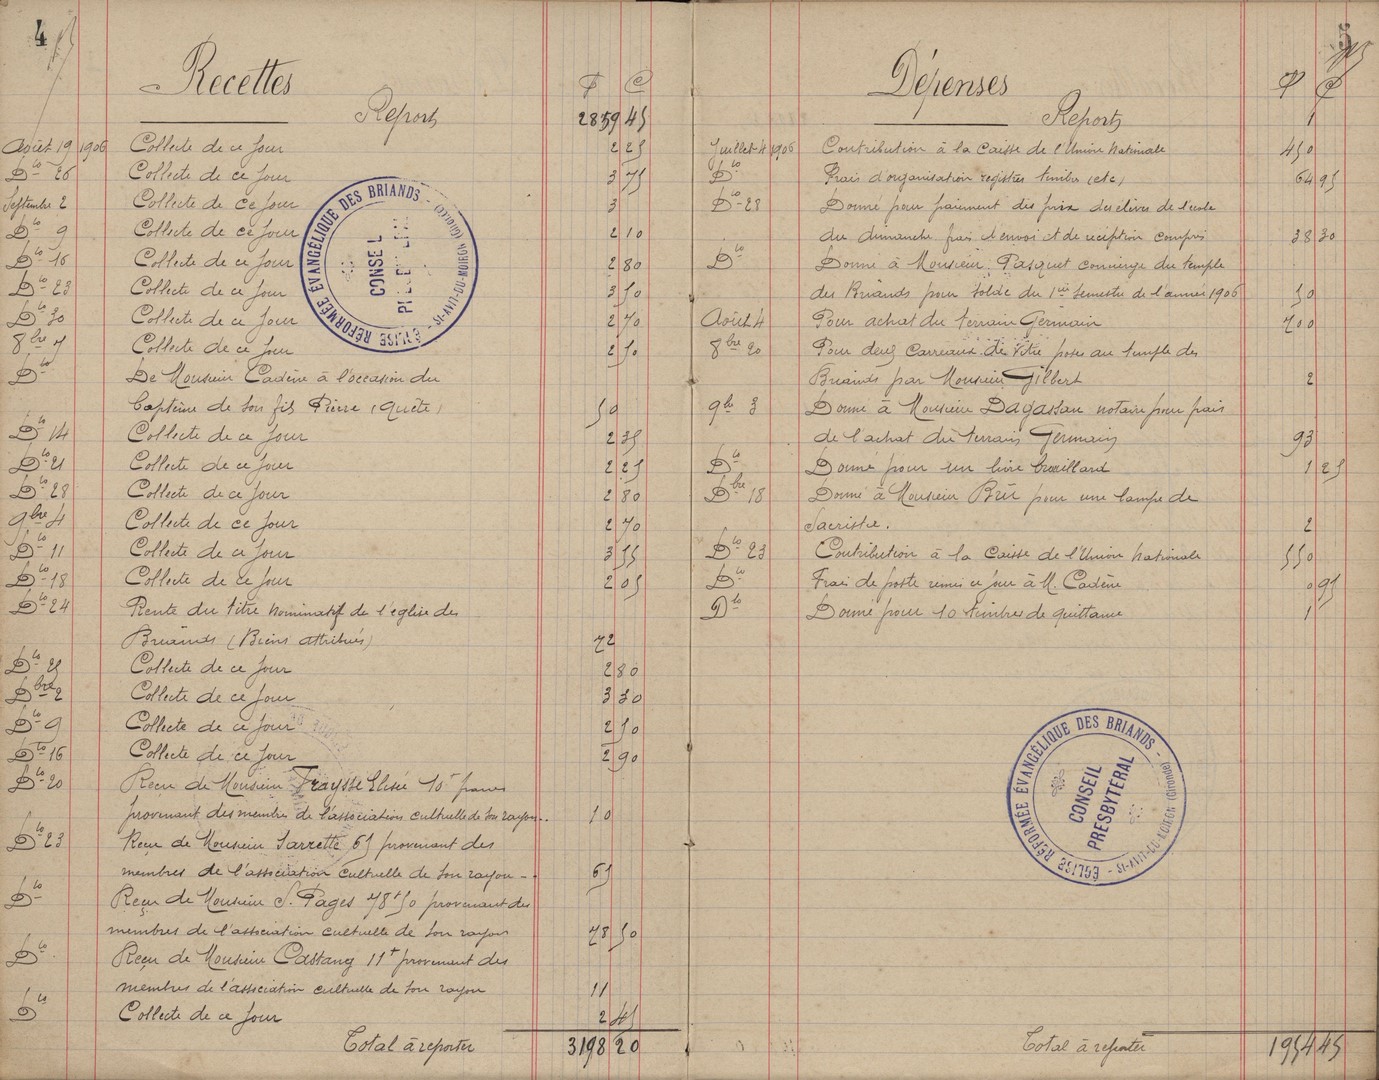 4
Recettes F C
Report 2859 45
Août 19 1906 Collecte de ce Jour 2 25
Dto 26 Collecte de ce Jour 3 75
Septembre 2 Collecte de ce Jour 3
Dto 9 Collecte de ce Jour 2 10
Dto 16 Collecte de ce Jour 2 80
Dto 23 Collecte de ce Jour 3 50
Dto 30 Collecte de ce Jour 2 70
8bre 7 Collecte de ce Jour 2 50
Dto De Monsieur Cadène à l'occasion du
baptême de son fils Pierre (Quête) 50
Dto 14 Collecte de ce Jour 2 35
Dto 21 Collecte de ce Jour 2 25
Dto 28 Collecte de ce Jour 2 80
9bre 4 Collecte de ce Jour 2 70
Dto 11 Collecte de ce Jour 3 55
Dto 18 Collecte de ce Jour 2 05
Dto 24 Rente du titre nominatif de l'église des
Briands (Biens attribués) 72
Dto 25 Collecte de ce Jour 2 80
Dbre 2 Collecte de ce Jour 3 30
Dto 9 Collecte de ce Jour 2 50
Dto 16 Collecte de ce Jour 2 90
Dto 20 Reçu de Monsieur Fraysse Elisée 10f francs
provenant des membre de l'association cultuelle de son rayon.. 10
Dto 23 Reçu de Monsieur Sarrette 65 provenant des
membres de l'association cultuelle de son rayon - . 65
Dto Reçu de Monsieur S. Pages 78f50 provenant des
membres de l'association cultuelle de son rayon 78 50
Dto Reçu de Monsieur Castang 11f provenant des
membres de l'association cultuelle de son rayon 11
Dto Collecte de ce Jour 2 45
Total à reporter 3198 20
ÉGLISE RÉFORMÉE ÉVANGÉLIQUE DES BRIANDS - St-AVIT-DU-MOIRON (Gironde) -
CONSEIL
5
Dépenses F C
Report 1
Juillet 4 1906 Contribution à la Caisse de l'Union Nationale 450
Dto Frais d'organisation registres timbres (etc) 64 95
Dto 28 Donné pour paiement des prix des élèves de l'école
du dimanche frais d'envoi et de réception compris 38 30
Dto Donné à Monsieur Pasquet concierge du temple
des Briands pour solde du 1er Semestre de l'année 1906 50
Août 4 Pour achat du terrain Germain 700
8bre 20 Pour deux Carreaux de vitre posés au temple des
Briands par Monsieur Gilbert 2
9bre 3 Donné à Monsieur Dagassan notaire pour frais
de l'achat du terrain Germain 93
Dto Donné pour un livre brouillard 1 25
Dbre 18 Donné à Monsieur Brü pour une lampe de
Sacristie. 2
Dto 23 Contribution à la Caisse de l'Union Nationale 550
Dto Frai de poste remis ce jour à M. Cadène 0 95
Dto Donné pour 10 timbres de quittance 1
ÉGLISE RÉFORMÉE ÉVANGÉLIQUE DES BRIANDS - St-AVIT-DU-MOIRON (Gironde) -
CONSEIL
PRESBYTÉRAL
Total à reporter 1954 45